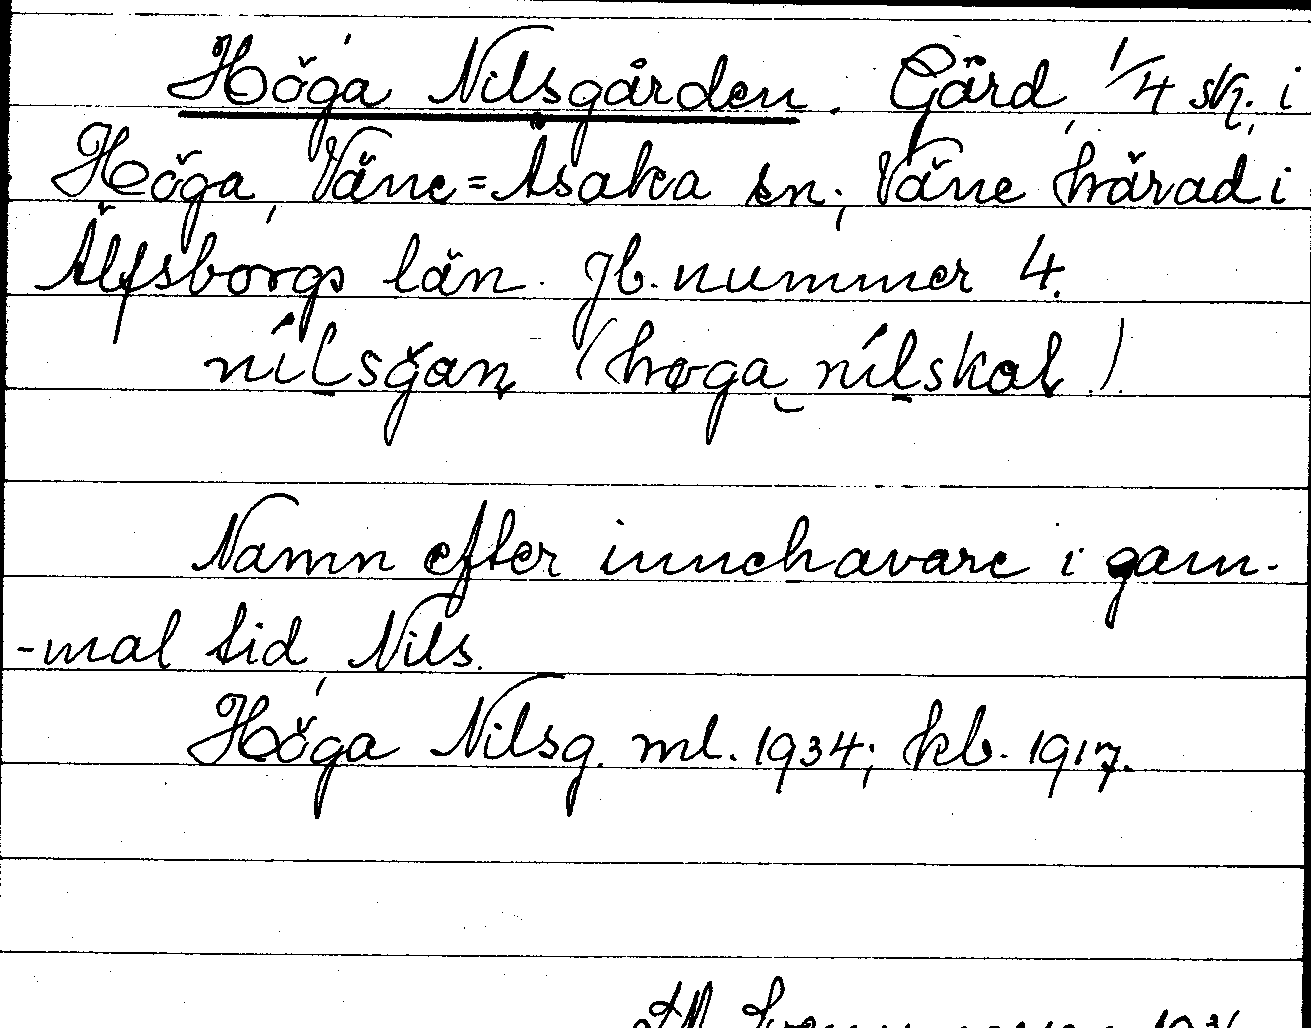 Höga Nilsgården. Gård, 1/4 sk. i
Höga, Väne=Åsaka sn; Väne härad i
Älfsborgs län. Jb. nummer 4.
nilsgan (høga nilskol).
Namn efter innehavare i gam-
-mal tid Nils.
Höga Nilsg. ml. 1934; kb. 1917.